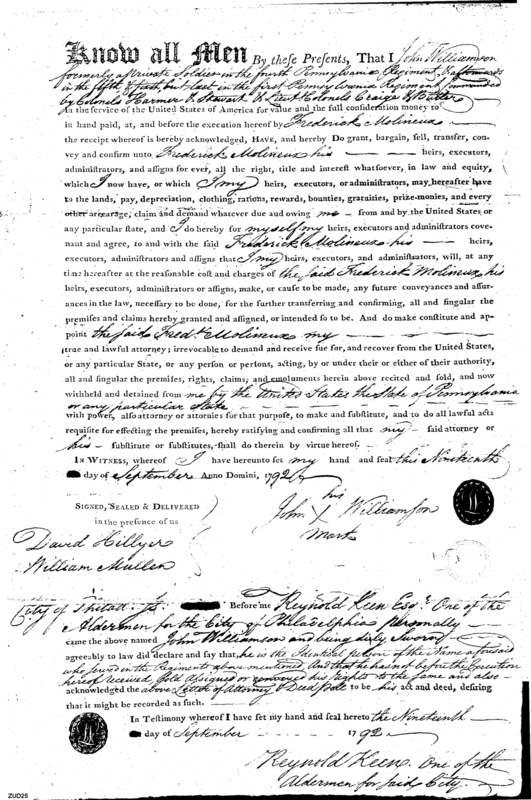 Know all Men By these Presents, That I John Williamson
formerly a Private Soldier in the fourth Pennsylvania Regiment, & afterwards
in the fifth & but last in the first Pennsylvania Regiment Commanded
by Colonels Harmer & Stewart & Lieut Colonels Craig & Butler
In the service of the United States of America for value and the full consideration money to
in hand paid, at, and before the execution hereof by Frederick Molineux
the receipt whereof is hereby acknowledged, Have, and hereby Do grant, bargain, sell, transfer, con-
vey and confirm unto Frederick Molineux his heirs, executors,
administrators, and assigns for ever, all the right, title and interest whatsoever, in law and equity,
which I now have, or which I my heirs, executors, or administrators, may hereafter have
to the lands, pay, depreciation, clothing, rations, rewards, bounties, gratuities, prize-monies, and every
other arrearage, claim and demand whatever due and owing me from and by the United States, or
any particular state, and I do hereby for myself my heirs, executors and administrators cove-
nant and agree, to and with the said Frederick Molineux his heirs,
executors, administrators and assigns that I my heirs, executors, and administrators, will, at any
time hereafter at the reasonable cost and charge of the said Frederick Molineux his
heirs, executors, administrators or assigns, make, or cause to be made, any future conveyances and assur-
ances in the law, necessary to be done, for the further transferring and confirming, all and singular the
premises and claims hereby granted and assigned, or intended so to be. And do make constitute and ap-
point the said Fredk. Molineux my
true and lawful attorney; irrevocable to demand and receive and sue for, and recover from the United States,
or any particular State, or any person or persons, acting, by or under their or either of their authority,
all and singular the premises, rights, claims, and emoluments herein above recited and sold, and now
withheld and detained from me by the United States the State of Pennsylvania
or any particular State
with power, also attorney or attornies for that purpose, to make and substitute, and to do all lawful acts
requisite for effecting the premises, hereby ratifying and confirming all that my said attorney or
his substitute or substitutes, shall do therein by virtue hereof.
In Witness, whereof I have hereunto set my hand and seal this Nineteenth
day of September Anno Domini, 1792
Signed, Sealed & Delivered
in the presence of us
David Hillyer
William Mullen
his
John X Williamson
mark
City of Philad. ss. Before me Reynold Keen Esqr. One of the
Aldermen for the City of Philadelphia personally
came the above named John Williamson and being duly Sworn
agreeably to law did declare and say that, he is the Identical person of the Name aforesaid
who served in the Regiments above mentioned, And that he has not before the Execution
hereof received, Sold Assigned or conveyed his Rights to the same and also
acknowledged the above Letter of Attorney & Deed Poll to be his act and deed, desiring
that it might be recorded as such.
In Testimony whereof I have set my hand and seal hereto the Nineteenth
day of September 1792
Reynold Keen One of the
Aldermen for said City.
ZUD25